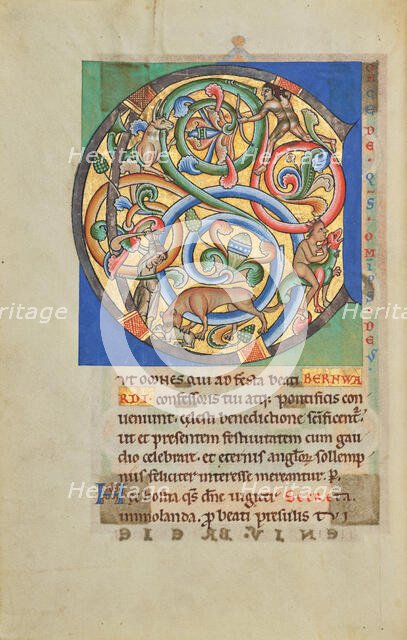 ONCEDE·QS·OMĪPS DEUS·
UT OMNES QUI AD FESTA beati BERNWA
RDI· confessoris tui atq; pontificis con
veniunt. celesti benedictione scīficent̄.
ut et presentem festivitatem cum gau
dio celebrent. et eternis angloꝝ sollemp
niis feliciter interesse mereantur. p̄.
Hostia qs dn̄e Secreta
immolanda. p̄ beati presulis TUI
Heritage